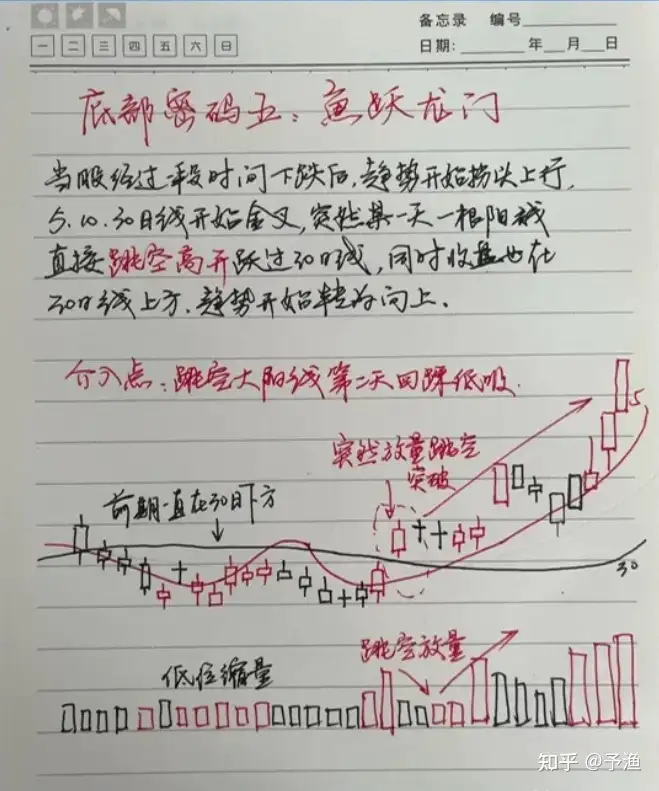 备忘录 编号
一 二 三 四 五 六 日
日期: 年 月 日
底部密码五：鱼跃龙门
当股经过一段时间下跌后，趋势开始拐以上行，
5.10.30日线开始金叉，突然某一天一根阳线
直接跳空高开跃过30日线，同时收盘也在
30日线上方，趋势开始转为向上。
介入点：跳空大阳线第二天回踩低吸.
5
突然放量跳空
突破
前期一直在30日下方
30
跳空放量
低位缩量
知乎 @予渔